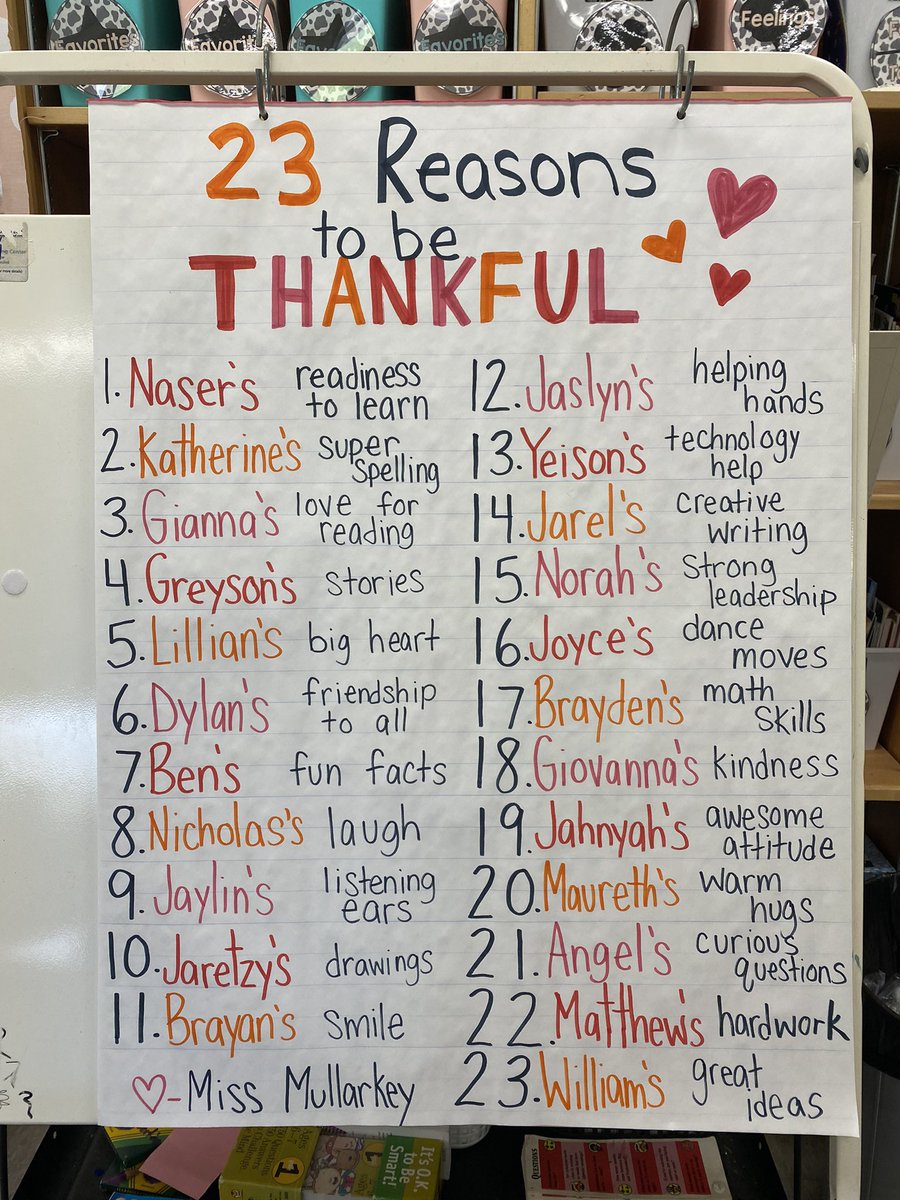 Favorites
Favorites
Favorites
Favorites
Feelings
23 Reasons
to be
THANKFUL
1. Naser's readiness
to learn
2. Katherine's super
spelling
3. Gianna's love for
reading
4. Greyson's stories
5. Lillian's big heart
6. Dylan's friendship
to all
7. Ben's fun facts
8. Nicholas's laugh
9. Jaylin's listening
ears
10. Jaretzy's drawings
11. Brayan's smile
- Miss Mullarkey
12. Jaslyn's helping
hands
13. Yeison's technology
help
14. Jarel's creative
writing
15. Norah's strong
leadership
16. Joyce's dance
moves
17. Brayden's math
skills
18. Giovanna's kindness
19. Jahnyah's awesome
attitude
20. Maureth's warm
hugs
21. Angel's curious
questions
22. Matthew's hardwork
23. William's great
ideas
It's O.K.
to Be
Smart!
1
QUESTIONS